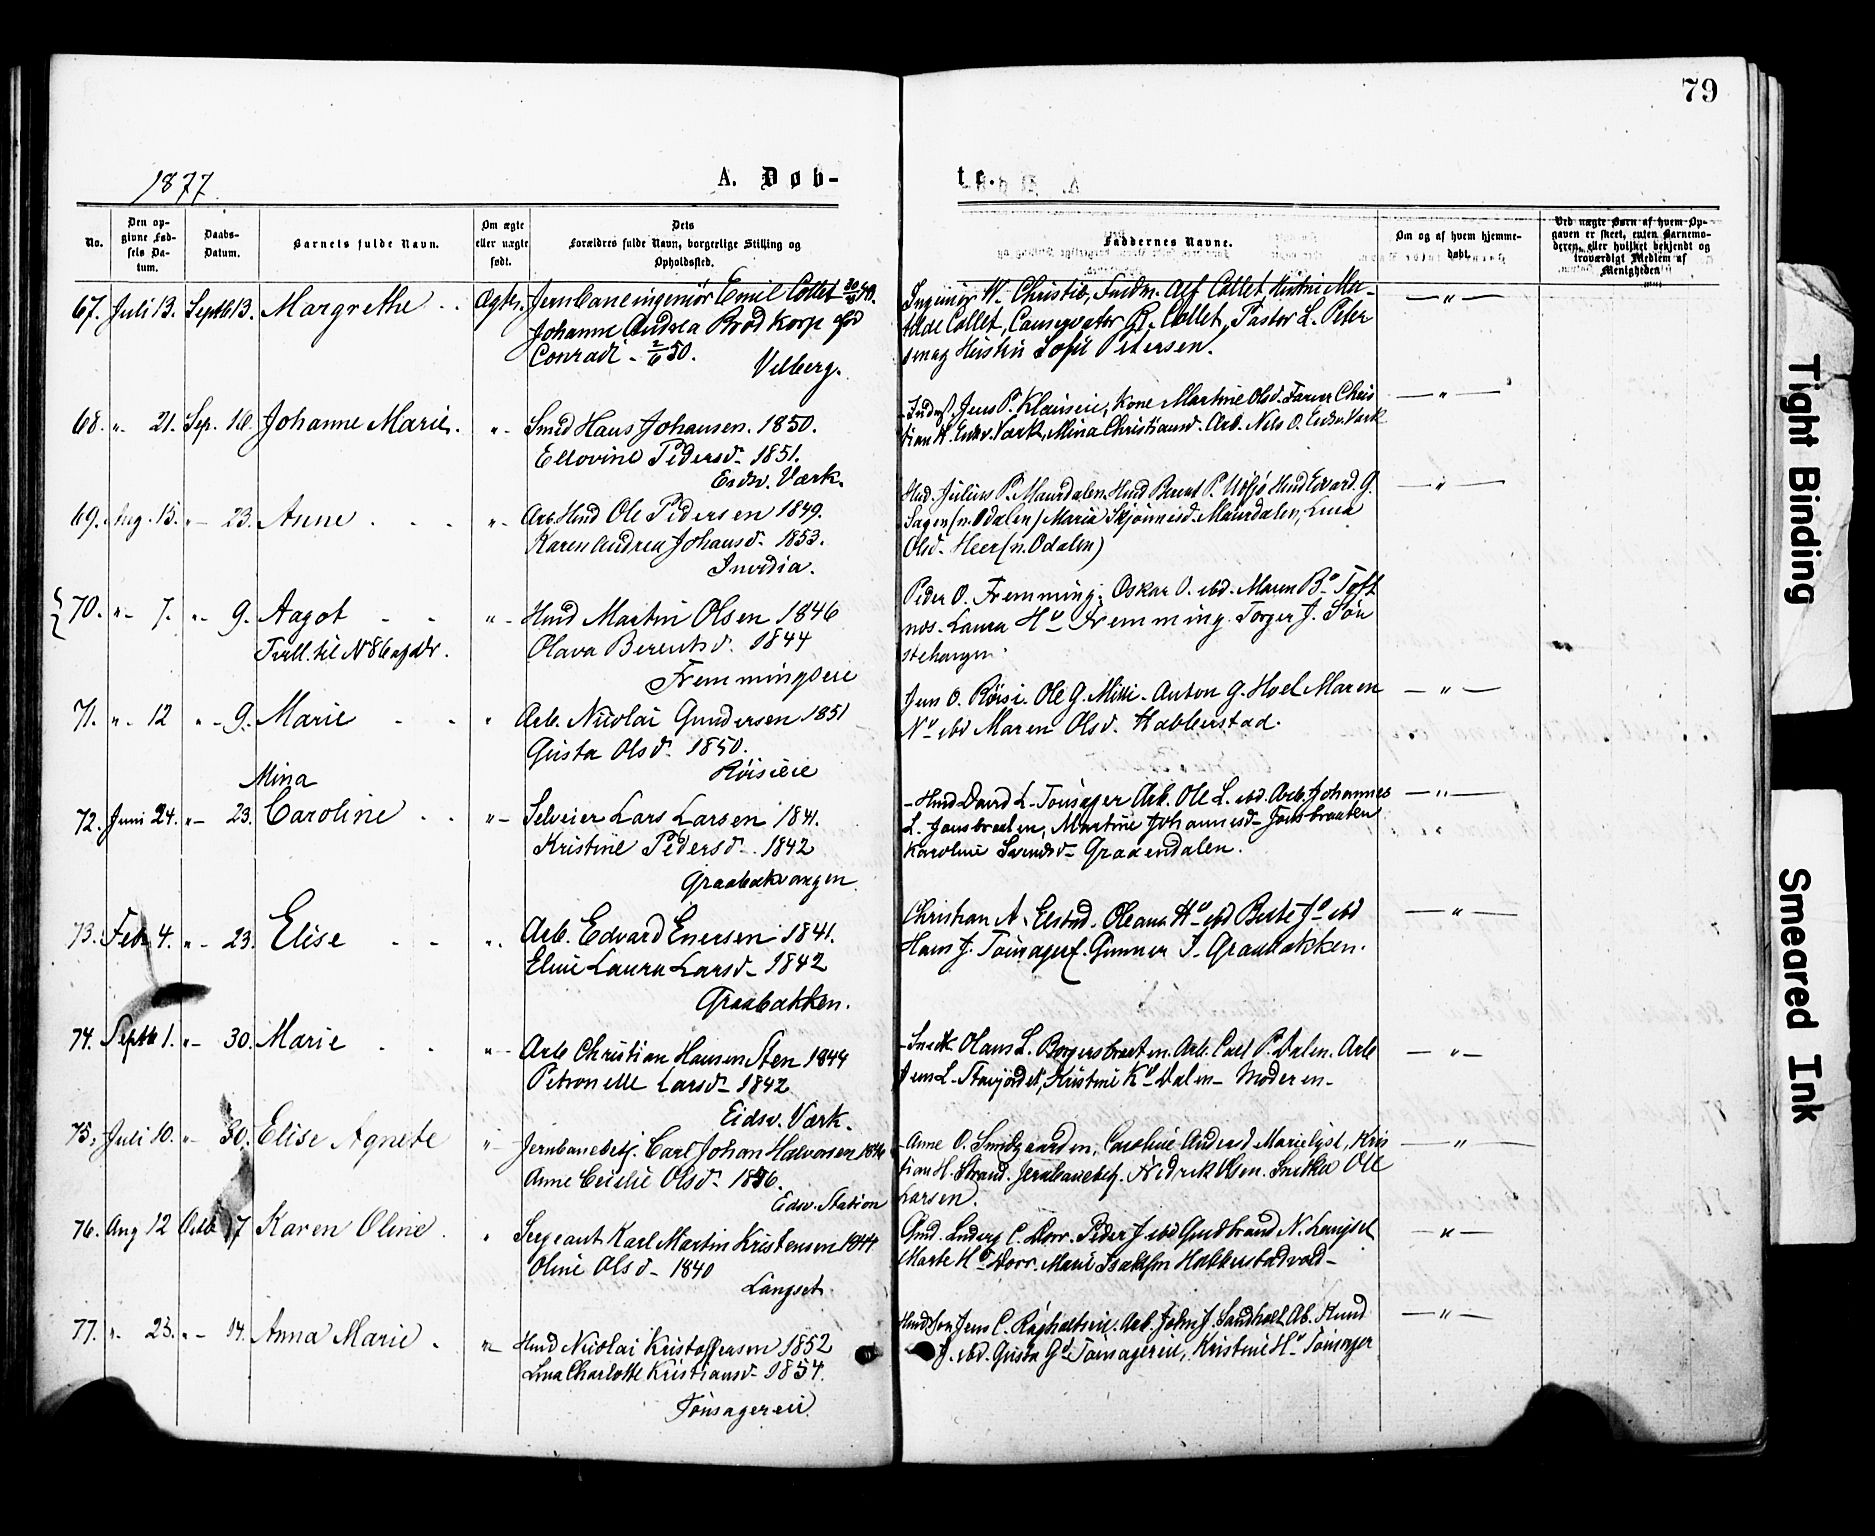 79
1877.
A. Døb-
te.
No.
Den op-
givne Fød-
sels Da-
tum.
Daabs-
Datum.
Barnets fulde Navn.
Om ægte
eller uægte
født.
Dets
Forældres fulde Navn, borgerlige Stilling og
Opholdssted.
Faddernes Navne.
Om og af hvem hjemme-
døbt.
Ved uægte Børn af hvem Op-
gaven er skeet, enten Barnemo-
deren, eller hvilket bekjendt og
troværdigt Medlem af
Menigheden
67. Juli 13. Septb 13. Margrethe Ægte. Jernbaneingeniør Emil Collet
Johanne Andrea Brodkorp født
Conradi - 2/6 50.
Velberg.
Ingeniør W. Christie, Alf Collet,
Collet, Conservator R. Collet, Pastor L. Peter
sen og Hustru Sofie Petersen.
68. " 21. Sep. 16. Johanne Marie. " Smed Hans Johansen. 1850.
Ellovine Pedersd. 1851.
Eidsv. Værk.
Jens P. Klæiseie, Kone Martine Olsd. Farver Chris
tian H. Eidsv. Værk, Mina Christiansd. Arb. Nils O. Eidsv. Værk
69. Aug. 15. " 23. Anne " Arb. Hmd Ole Pedersen 1849.
Karen Andrea Johansd. 1853.
Invidia.
Hmd. Julius P. Maurdalen. Hmd Bernt P. Hmd Edvard G.
Sagen (n. Odalen) Maria Maurdalen, Lina
Olsd. Heer (n. Odalen)
70. " 7. " 9. Aagot " Hmd Martin Olsen 1846
Tvill. til N 86 af Dr. Olava Berentsd. 1844
Fremmingseie
Peder O. Fremming. Oskar O. ibd. Maren Bd. Toft
nes. Laura Hd Fremming. Torger J. Søn
stehangen
71. " 12 " 9. Marie " Arb. Nicolai Gundersen 1851
Gusta Olsd. 1850.
Røisieie
Jens O. Røisi. Ole G. Milli. Anton G. Hoel Maren
Nd ibd Maren Olsd. Habberstad.
Mina
72. Juni 24. " 23. Caroline " Selveier Lars Larsen 1841.
Kristine Pedersd. 1842
Graabækvangen
Hmd David L. Tønsager Arb. Ole L. ibd. Arb. Johannes
L. Jonsbraaten, Martine Johannesd. Jonsbraaten
Karoline Svendsd. Graaendalen.
73. Feb. 4. " 23. Elise " Arb. Edvard Enersen 1841.
Eline Laura Larsd. 1842
Graabakken.
Christian A. Elstad. Oleana Hd ibd Berte Jd ibd
Hans J. Tønsager. Gunner I. Graabakken.
74. Septb 1. " 30. Marie " Arb Christian Hansen Sten 1844
Petronelle Larsd. 1842
Eidsv. Værk.
Snedk. Olaus L. Borgersbraaten. Arb. Carl P. Dalen. Arb
Jens L. Kristine Kd Dalen - Moderen -
75. Juli 10. " 30. Elise Agnete " Jernbanebetj. Carl Johan Halvorsen
Anne Cecilie Olsd. 1846.
Eidsv. Station
Anne O. Smedgaarden, Caroline Andersd Marielyst, Kris
tian H. Strand. Jernbanebetj. Fredrik Olsen. Snedker Ole
Larsen.
76. Aug 12 Octb. 7 Karen Oline " Sergeant Karl Martin Kristensen 1844
Oline Olsd. 1840
Langset.
Gmd. Ludvig C. Dorr. Peder J ibd Gudbrand N. Langset
Marte Hd Dorr. Marie Isaksen Habberstadvold -
77. " 23. " 14. Anna Marie " Hmd Nicolai Kristoffersen 1852
Lina Charlotte Kristiansd. 1854.
Tønsagereie
Jens C. Ragholtseie. Arb. John J. Sandholt. Ab. Knud
J. ibd. Gusta Gd Tønsagereie, Kristine Hd Tønsager
Tight Binding
Smeared Ink